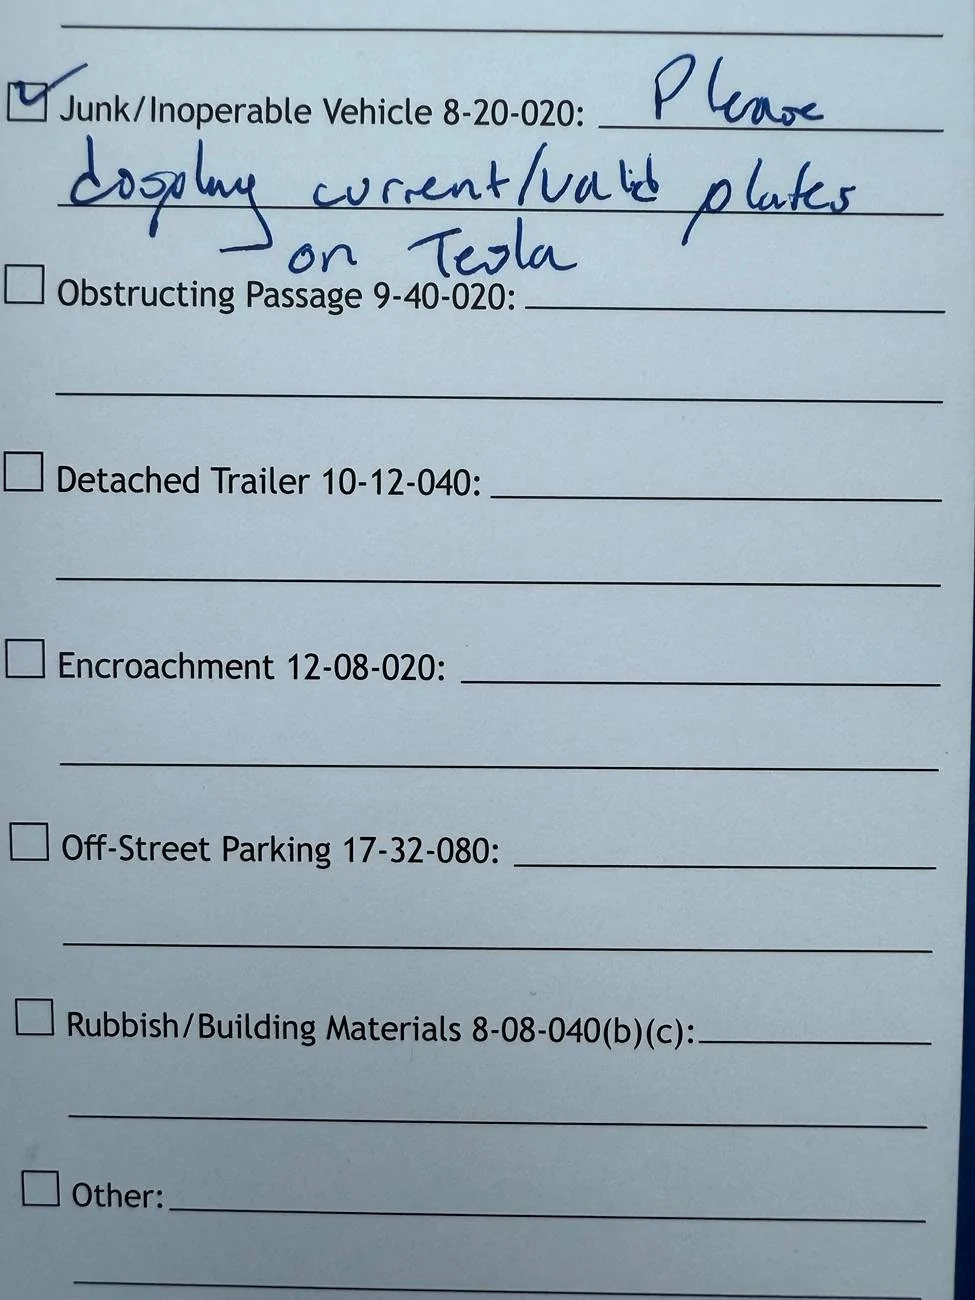 Junk/Inoperable Vehicle 8-20-020: Please
display current/valid plates
on Tesla
Obstructing Passage 9-40-020:
Detached Trailer 10-12-040:
Encroachment 12-08-020:
Off-Street Parking 17-32-080:
Rubbish/Building Materials 8-08-040(b)(c):
Other: